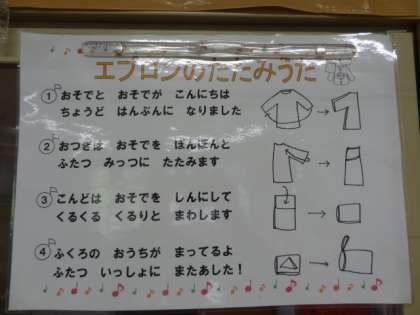 エプロンのたたみうた
① おそでと おそでが こんにちは
ちょうど はんぶんに なりました
② おつぎは おそでを ぽんぽんと
ふたつ みっつに たたみます
③ こんどは おそでを しんにして
くるくる くるりと まわします
④ ふくろの おうちが まってるよ
ふたつ いっしょに またあした！